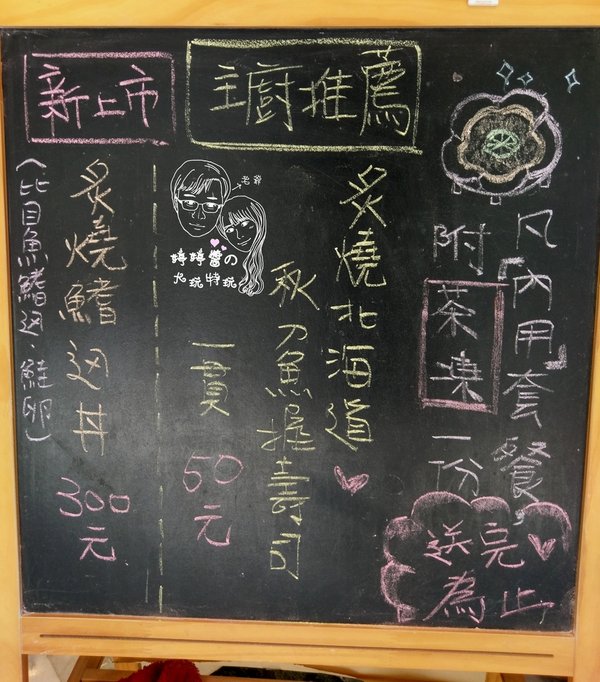 凡「內用」套餐,
附茶凍一份
送完
為止
主廚推薦
炙燒北海道
秋刀魚握壽司
一貫
50元
大玩特玩
新上市
炙燒鰭边丼
300元
(比目魚鰭边、鮭卵)